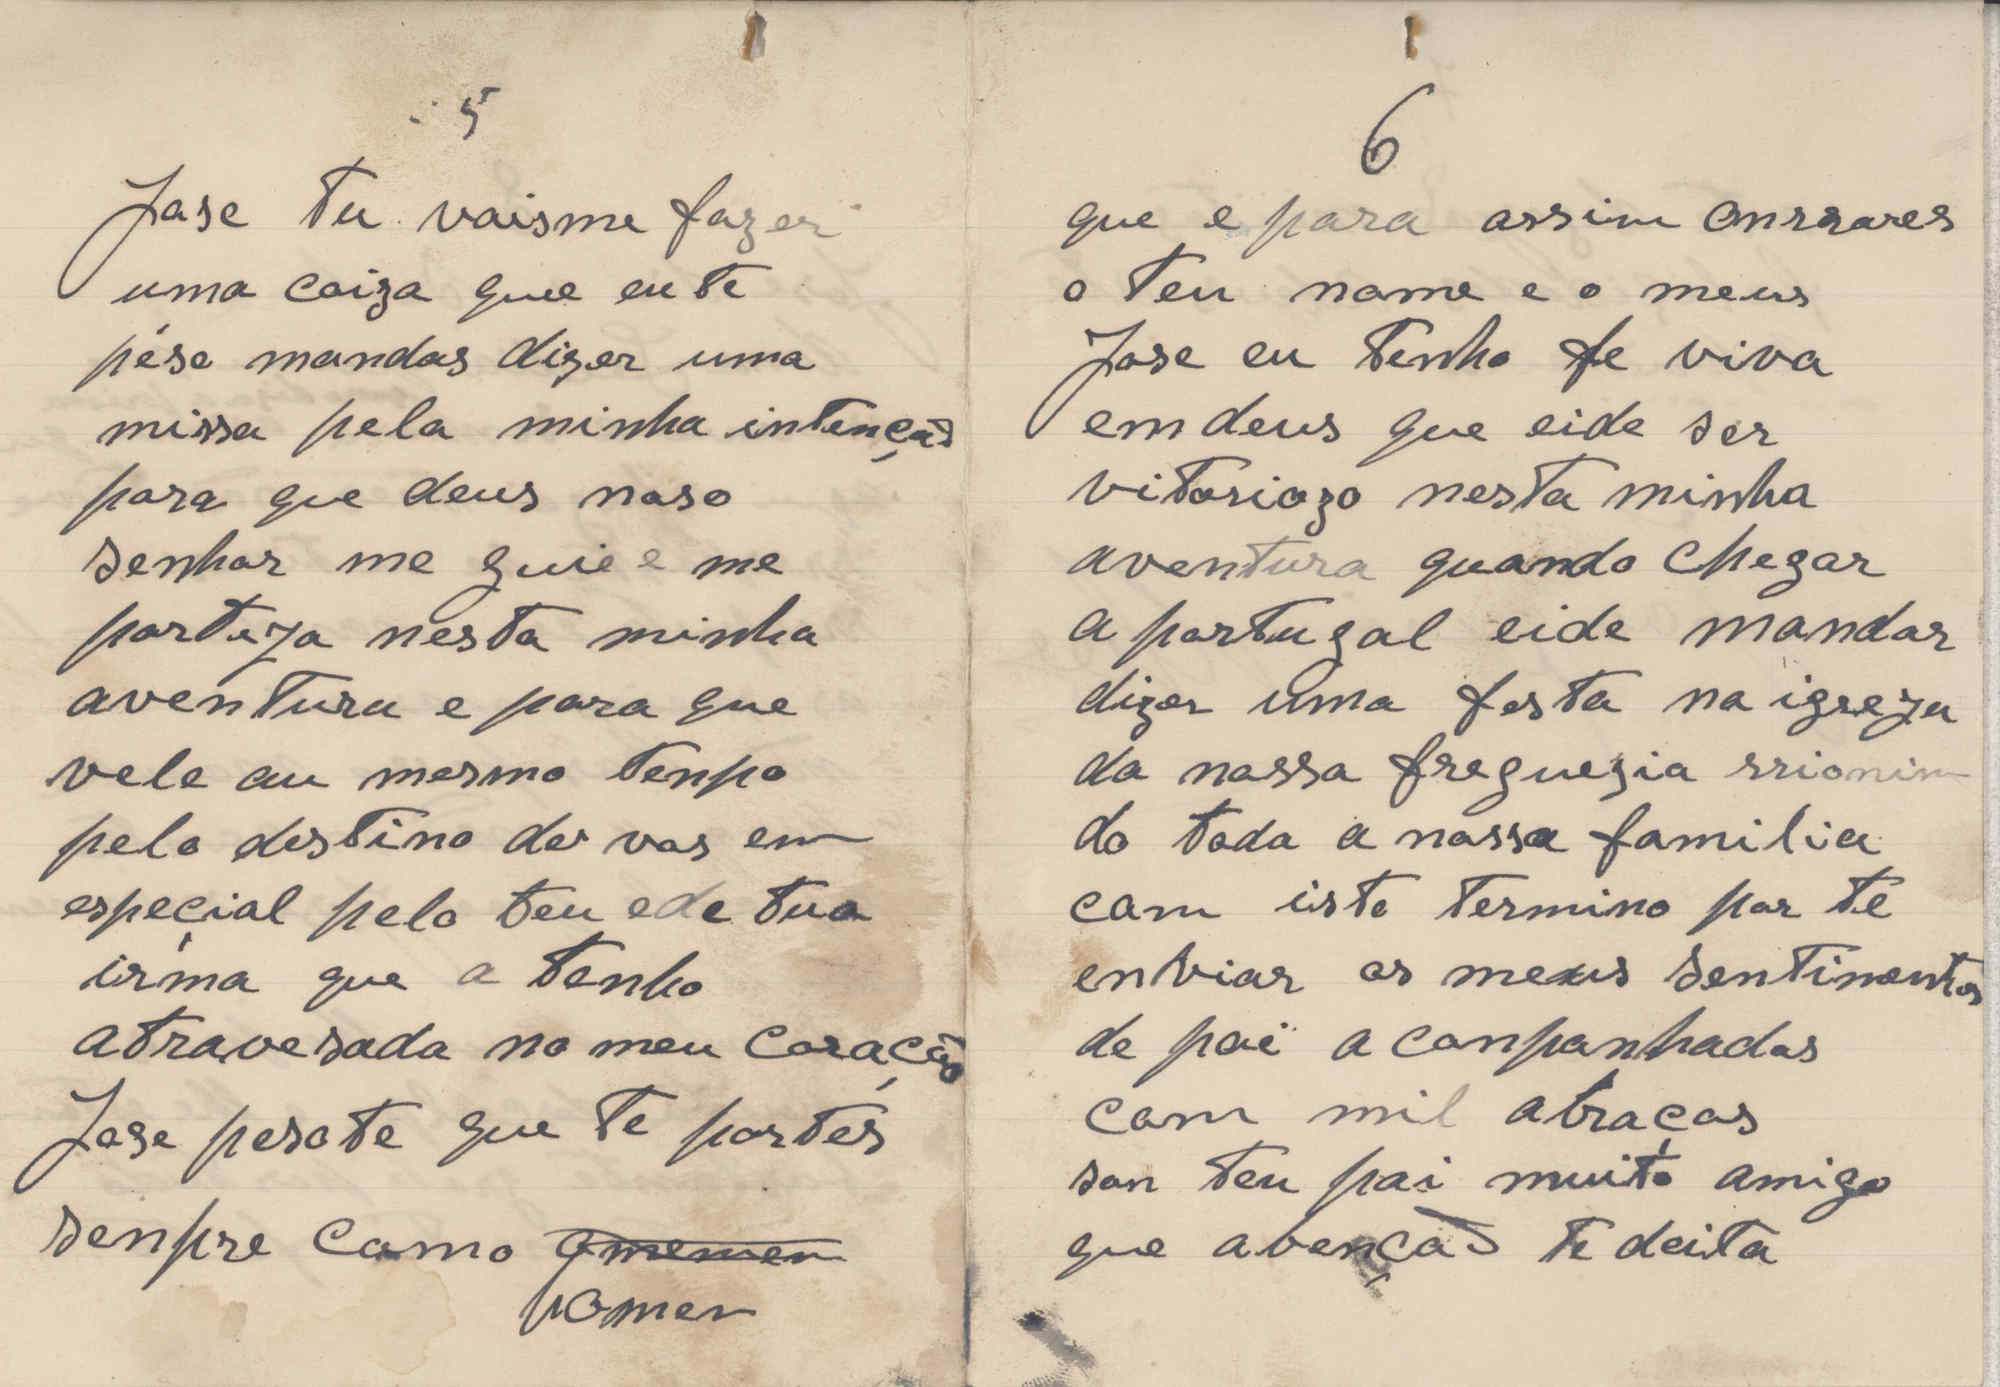 5
Jose tu vaisme fazer
uma coiza que eu te
péso mandas dizer uma
missa pela minha intenção
para que deus noso
senhor me guie e me
porteja nesta minha
aventura e para que
vele au mesmo tenpo
pelo destino de vos em
especial pelo teu e de tua
irma que a tenho
atravesada no meu coração
Jose pesote que te portes
senpre como
homen
6
que e para assim onrrares
o teu nome e o meus
Jose eu tenho fe viva
em deus que eide ser
vitoriozo nesta minha
aventura quando chegar
a portugal eide mandar
dizer uma festa na igreja
da nossa freguezia rrionin
do toda a nossa familia
com isto termino por te
enviar os meus sentimentos
de pai aconpanhados
com mil abraços
son teu pai muito amigo
que abenção te deita